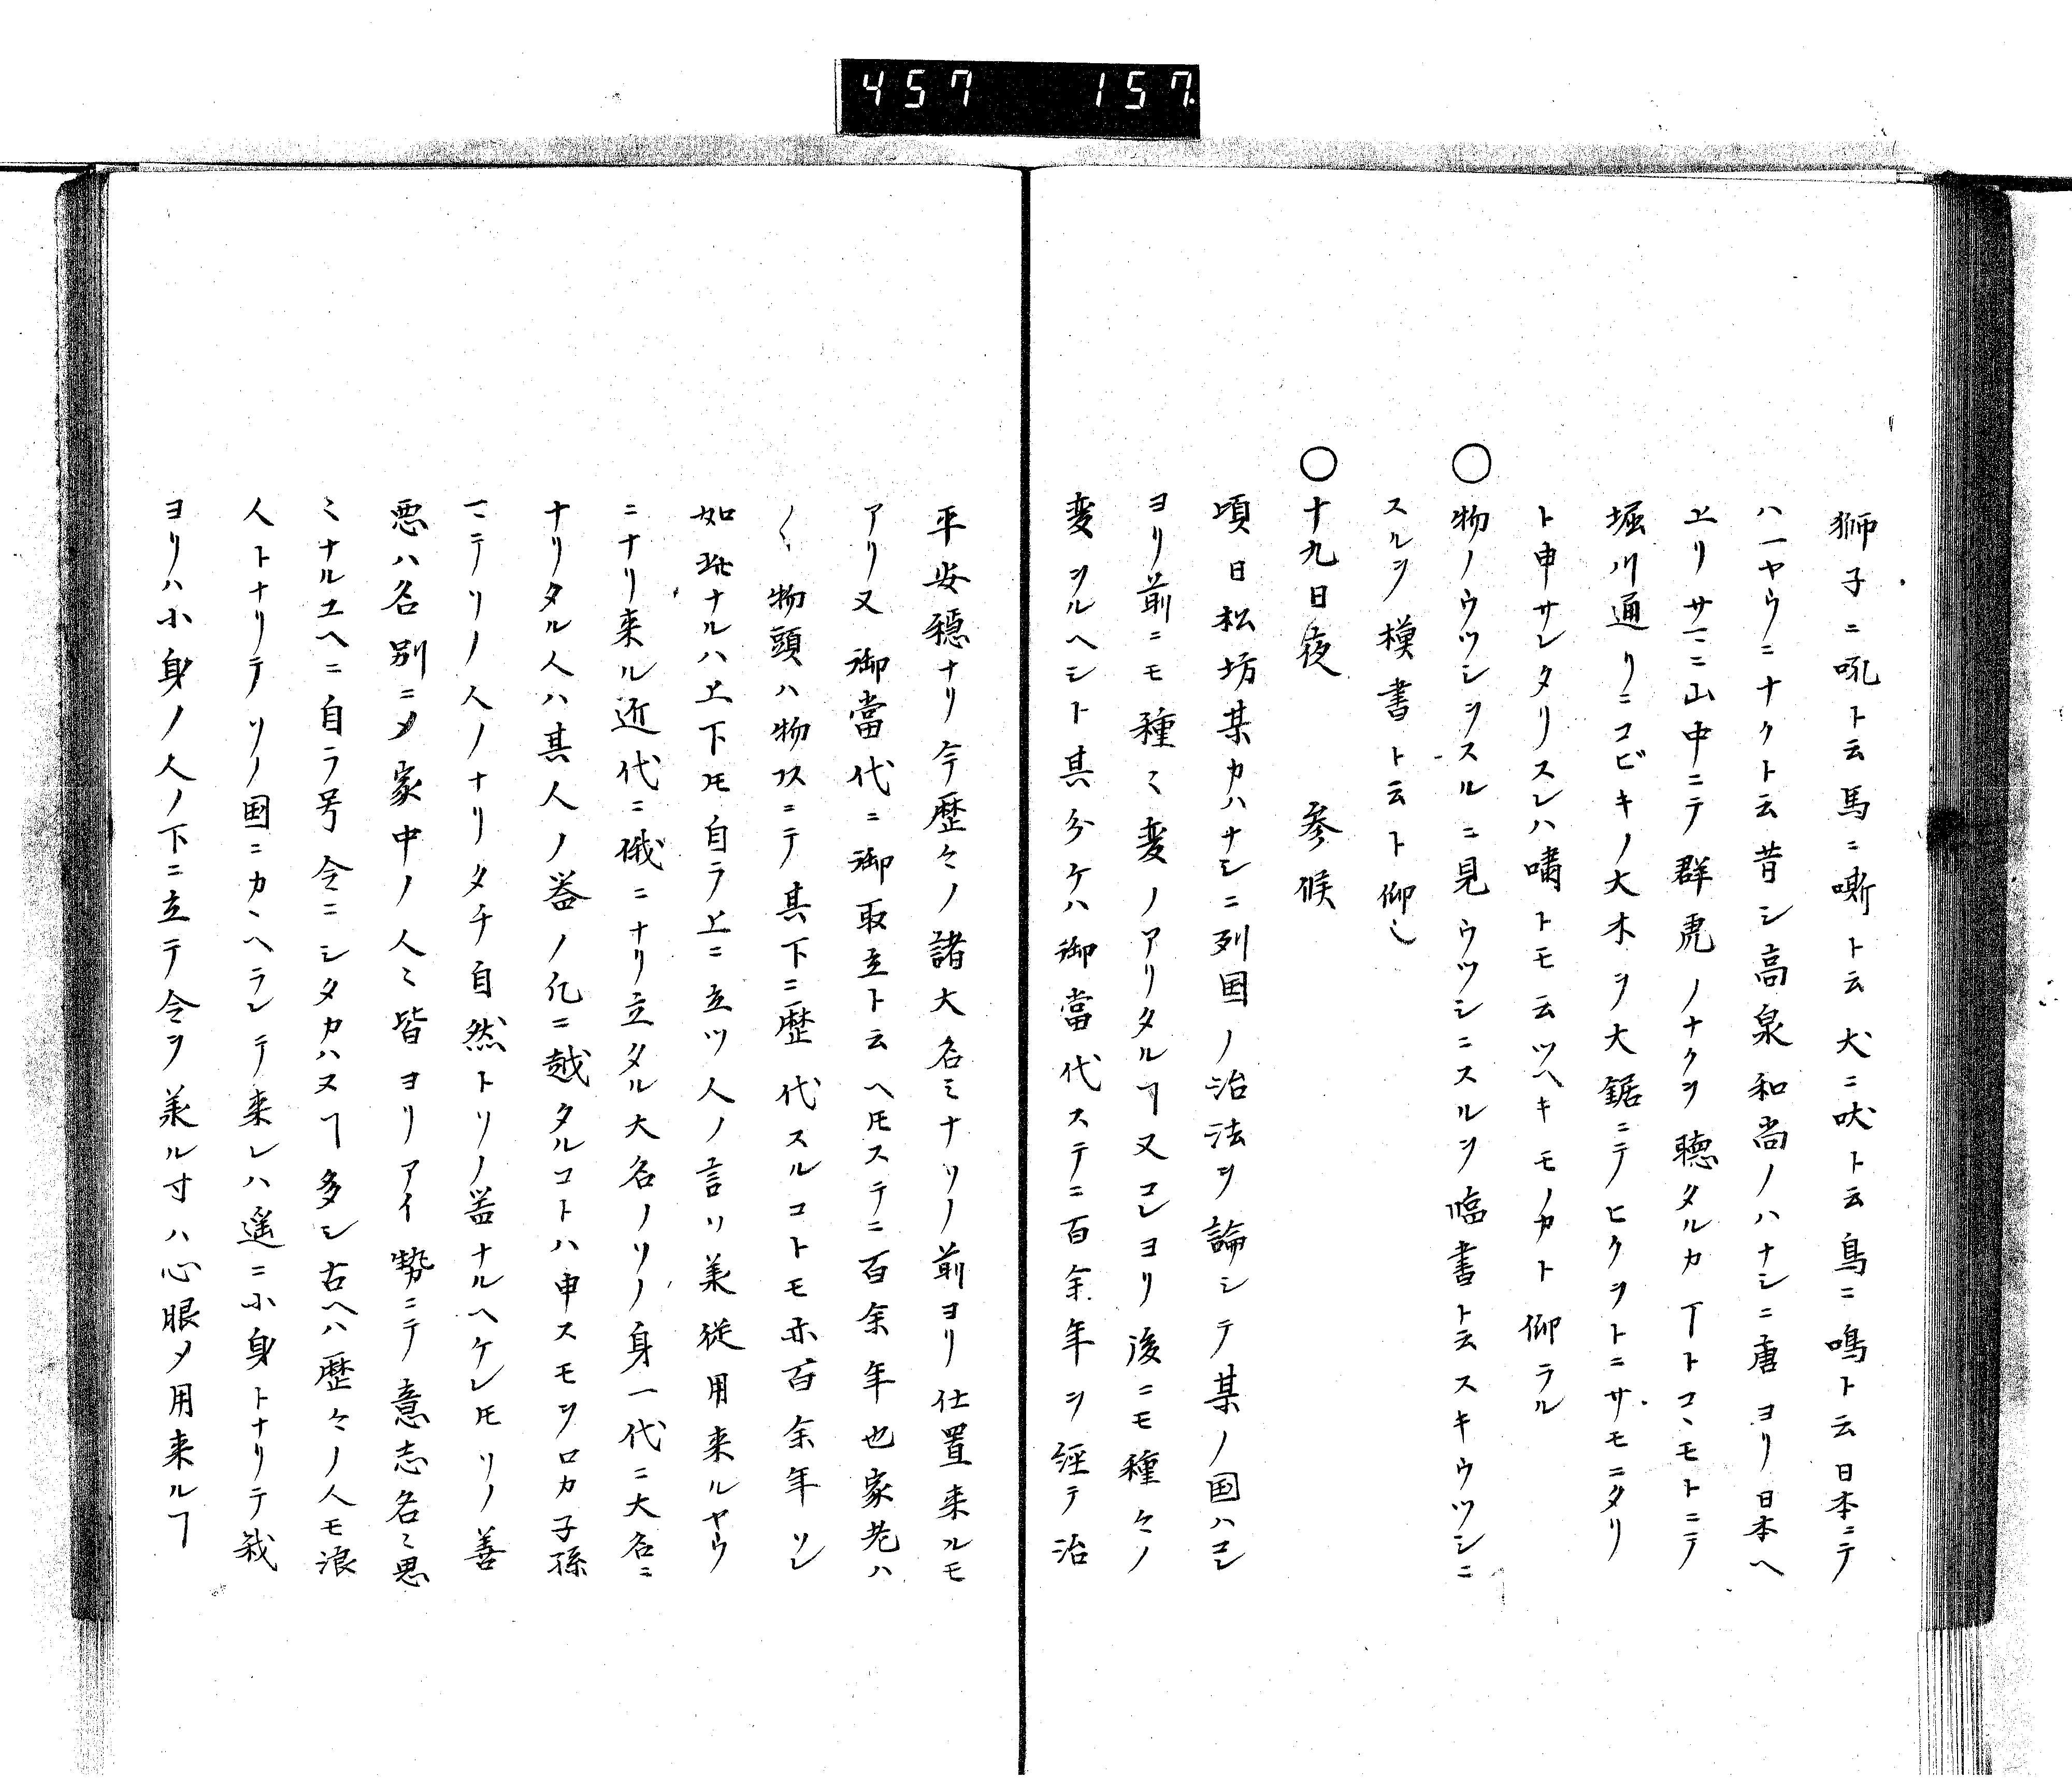 457 157.
獅子ニ吼ト云馬ニ嘶ト云犬ニ吠ト云鳥ニ鳴ト云日本ニテ
ハ一ヤウニナクト云昔シ高泉和尚ノハナシニ唐ヨリ日本ヘ
上リサマニ山中ニテ群虎ノナクヲ聴タルカ丁トコヽモトニテ
堀川通リニコビキノ大木ヲ大鋸ニテヒクヲトニサモニタリ
ト申サレタリスレハ嘯トモ云ツヘキモノカト仰ラル
〇物ノウツシヲスルニ見ウツシニスルヲ臨書ト云スキウツシニ
スルヲ模書ト云ト仰也
〇十九日夜 参候
頃日松坊某カハナシニ列国ノ治法ヲ論シテ某ノ国ハコレ
ヨリ前ニモ種々変ノアリタルヿ又コレヨリ後ニモ種々ノ
変ヲルヘシト其分ケハ御當代ステニ百余年ヲ経テ治
平安穏ナリ今歴々ノ諸大名ミナソノ前ヨリ仕置来ルモ
アリ又御當代ニ御取立ト云ヘ𪜈ステニ百余年也家老ハ
〱物頭ハ物スニテ其下ニ歴代スルコトモ亦百余年ソレ
如此ナルハ上下𪜈自ラ上ニ立ツ人ノ言ハ兼従用来ルヤウ
ニナリ来ル近代ニ俄ニナリ立タル大名ノソノ身一代ニ大名ニ
ナリタル人ハ其人ノ器ノ化ニ越タルコトハ申スモヲロカ子孫
マテソノ人ノナリタチ自然トソノ器ナルヘケレ𪜈ソノ善
悪ハ各別ニ〆家中ノ人々皆ヨリアイ勢ニテ意志名々思
ミナルユヘニ自ラ号令ニシタカハヌヿ多シ古ヘハ歴々ノ人モ浪
人トナリテソノ国ニカヽヘラレテ来レハ遥ニ小身トナリテ我
ヨリハ小身ノ人ノ下ニ立テ令ヲ兼ル寸ハ心眼〆用来ルヿ